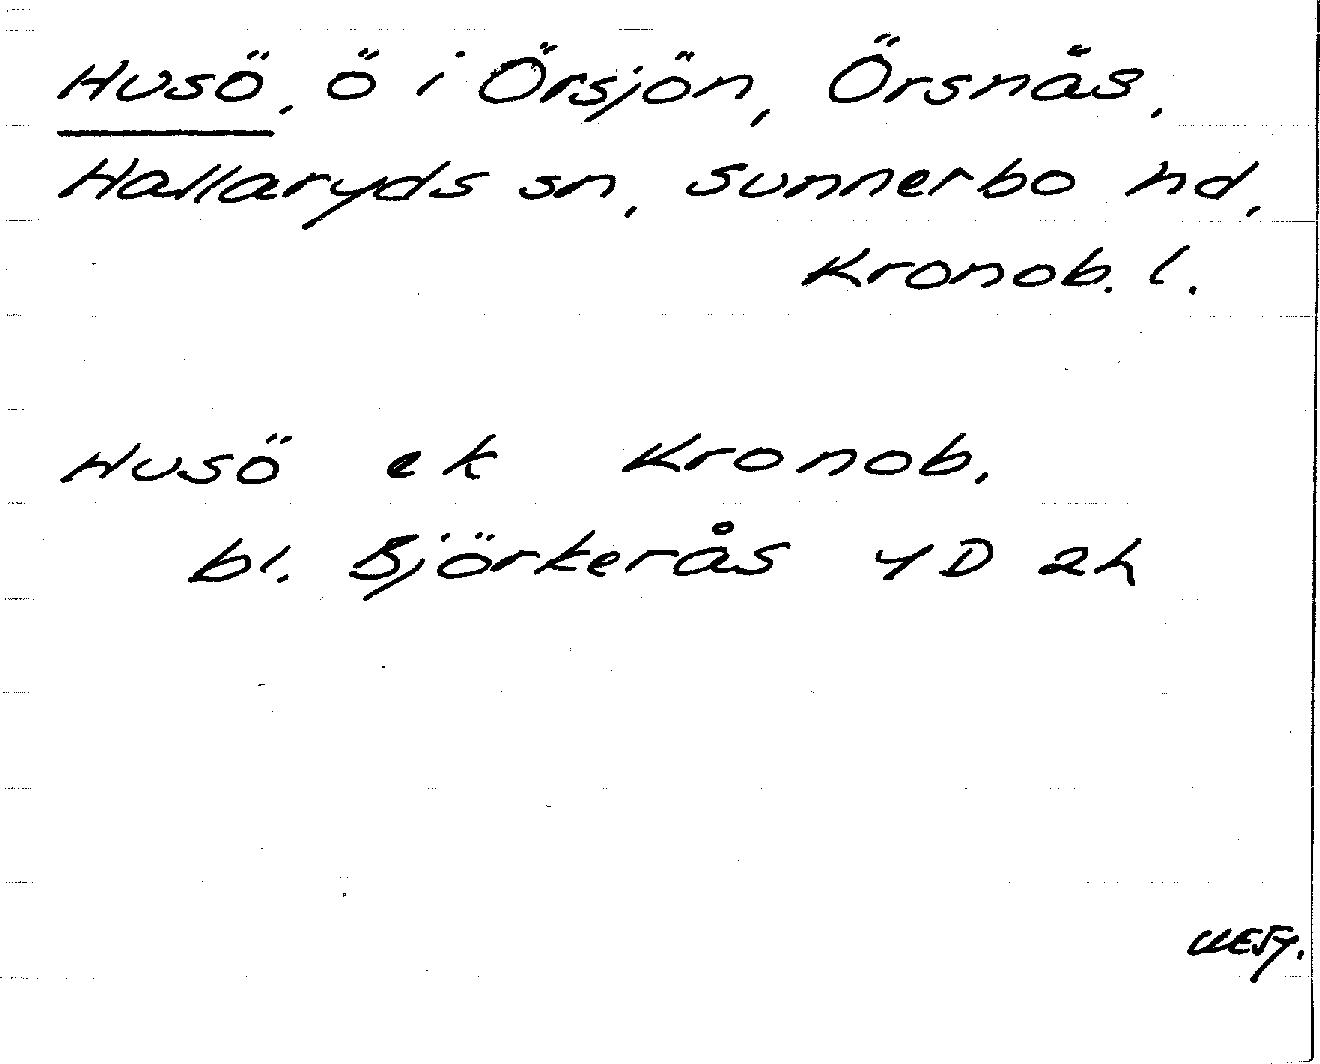 Husö, ö i Örsjön, Örsnäs,
Hallaryds sn, Sunnerbo hd,
Kronob. l.
Husö ek Kronob.
bl. Björkerås 4D 2h